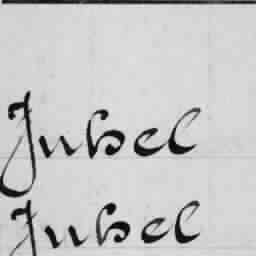 Jubel
Jubel